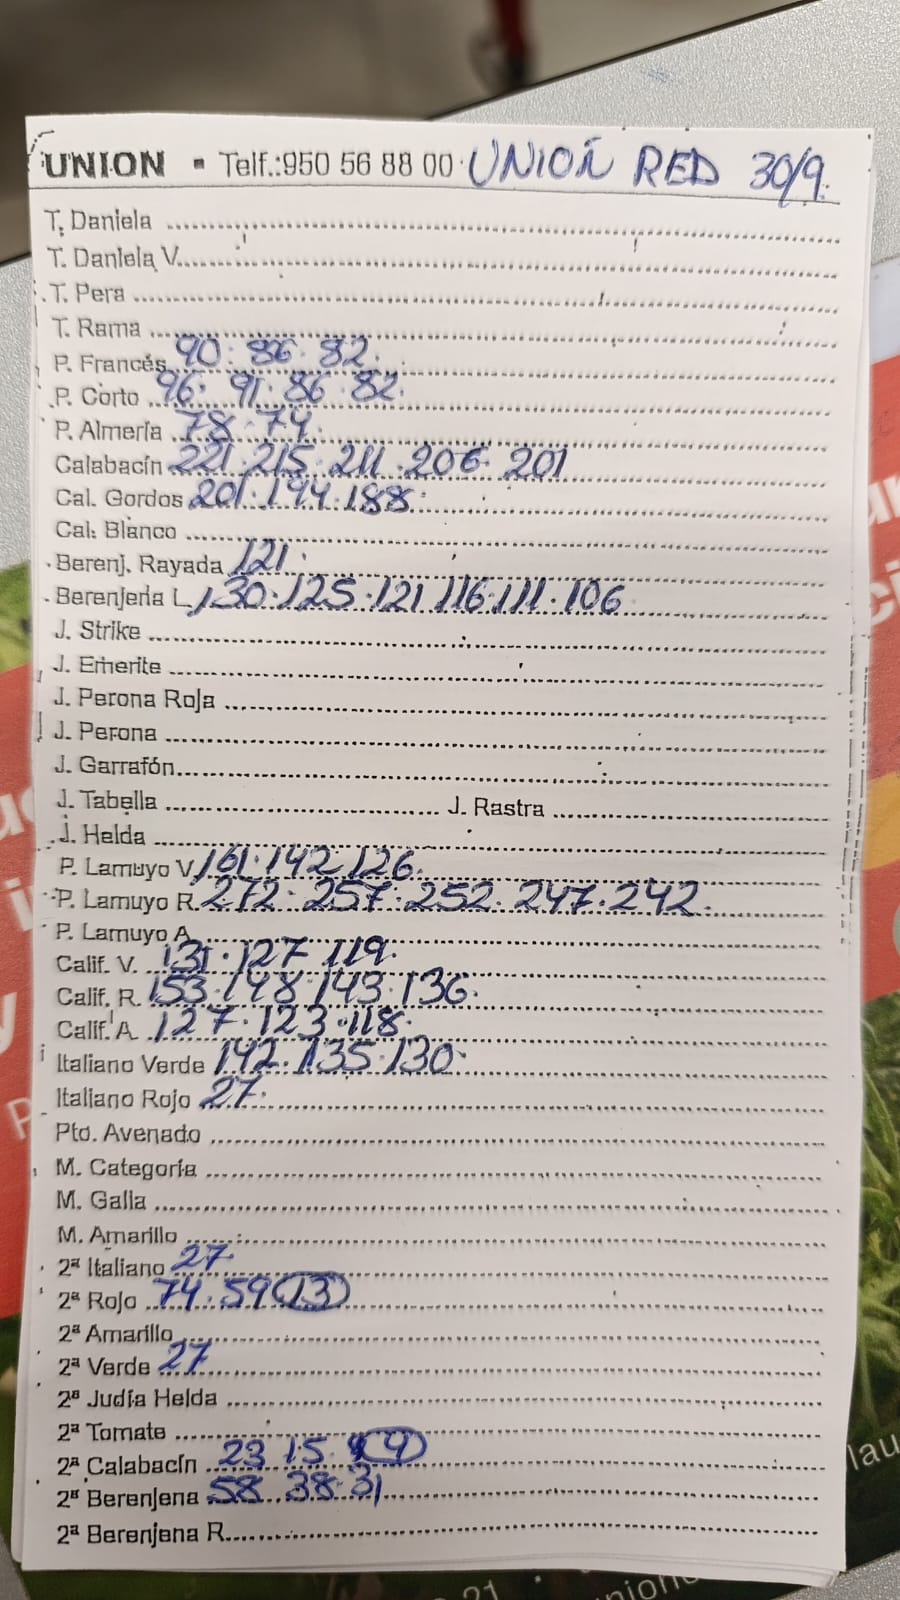 UNION - Telf.:950 56 88 00 UNION RED 30/9.
T. Daniela
T. Daniela V.
T. Pera
T. Rama
P. Francés 90. 86. 82.
P. Corto 96. 91. 86. 82.
P. Almería 78. 74.
Calabacín 221. 215. 211. 206. 201
Cal. Gordos 201. 194. 188.
Cal. Blanco
Berenj. Rayada 121.
Berenjena L. 130. 125. 121 116. 111. 106
J. Strike
J. Emerite
J. Perona Roja
J. Perona
J. Garrafón
J. Tabella J. Rastra
J. Helda
P. Lamuyo V. 161. 142 126.
P. Lamuyo R. 272. 257. 252. 247. 242.
P. Lamuyo A.
Calif. V. 131. 127 119.
Calif. R. 153. 148 143. 136.
Calif. A. 127. 123. 118.
Italiano Verde 142. 135. 130.
Italiano Rojo 27.
Pto. Avenado
M. Categoría
M. Galla
M. Amarillo
2ª Italiano 27.
2ª Rojo 74. 59 13
2ª Amarillo
2ª Verde 27
2ª Judía Helda
2ª Tomate
2ª Calabacín 23 15. 9
2ª Berenjena 58. 38. 31
2ª Berenjena R.